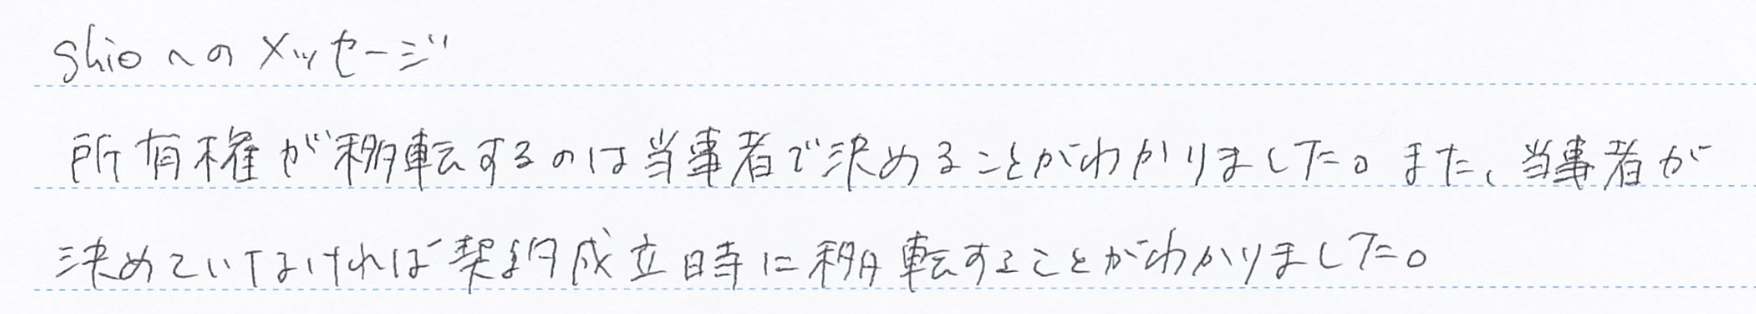 shioへのメッセージ
所有権が移転するのは当事者で決めることがわかりました。また、当事者が
決めていなければ契約成立時に移転することがわかりました。